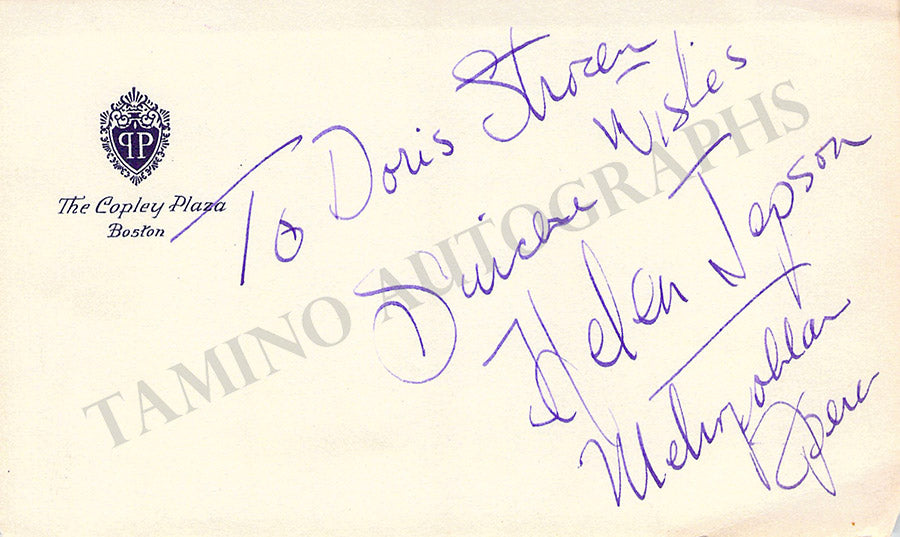 PP
The Copley Plaza
Boston
To Doris
Sincere Wishes
Helen Jepson
Metropolitan
Opera
TAMINO AUTOGRAPHS